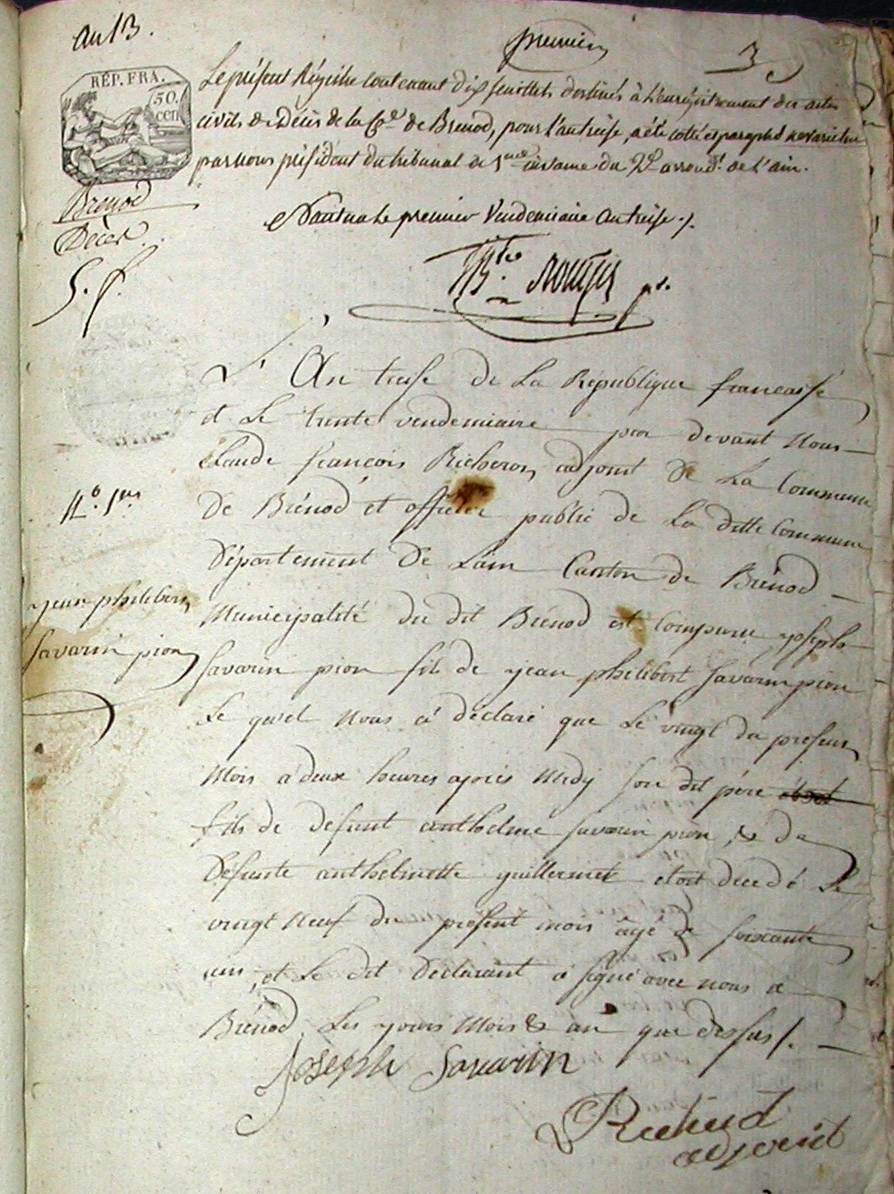 an 13.
premier
3
RÉP. FRA.
50.
cen
Le présent Régistre contenant dix feuillets destinés à l'enregistrement des actes
civils de Décès de la Cne de Brenod, pour l'an treise, a été cotté et paraphé ne varietur
par nous président du tribunal de 1ere instance du 2e arrondt de l'ain.
Brenod
Décès
Nantua le premier Vendemiaire an treise ./.
5. f.
L'An treise de La République francaise
et Le trente vendemiaire par devant Nous
Claude francois Richerod adjoint de La Commune
No. 1er
De Brénod et officier public de La ditte Commune
Département De Lain Canton de Brénod
jean philibert
Municipalité du dit Brénod est Comparu joseph
Savarin pion
Savarin pion fils de jean philibert Savarin pion
Le quel Nous a déclaré que Le vingt du present
Mois a deux heures apres Midy son dit père
fils de defunt anthelme Savarin pion, & de
Defunte anthelmette guillermet etoit decedé Le
vingt Neuf du present mois âgé de soixante
ans, et Le dit Déclarant a signé avec nous a
Brénod Les jours Mois & an que dessus /.
Joseph Savarin
adjoint